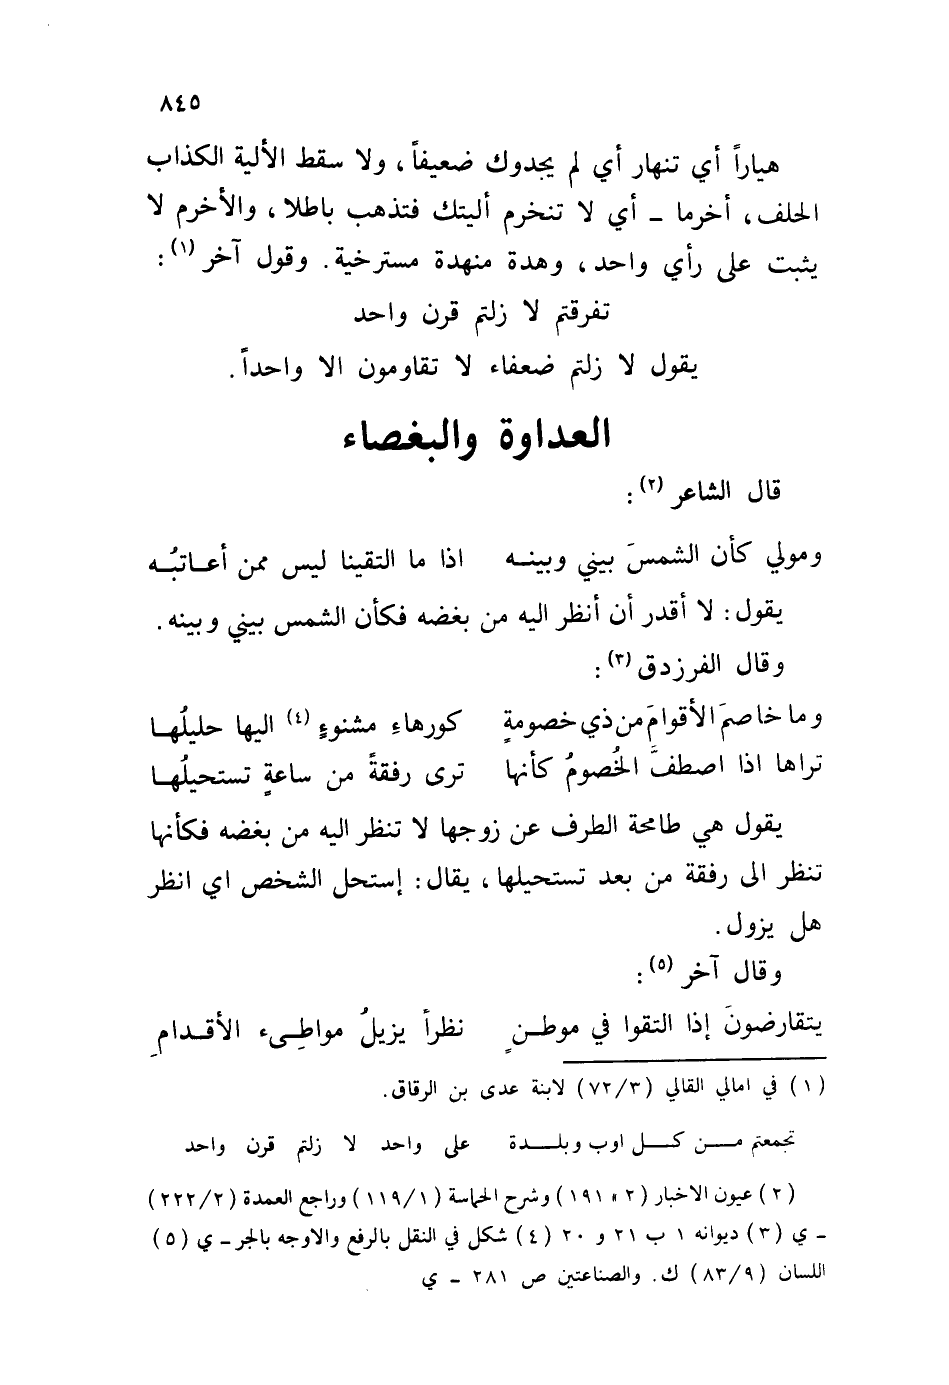 ٨٤٥
هياراً أي تنهار أي لم يجدوك ضعيفاً، ولا سقط الألية الكذاب
الحلف، أخرما - أي لا تنخرم أليتك فتذهب باطلا، والأخرم لا
يثبت على رأي واحد، وهدة منهدة مسترخية. وقول آخر (١):
تفرقتم لا زلتم قرن واحد
يقول لا زلتم ضعفاء لا تقاومون الا واحداً.
العداوة والبغضاء
قال الشاعر (٢):
ومولي كأن الشمسَ بيني وبينــه اذا ما التقينا ليس ممن أعــاتبُــه
يقول: لا أقدر أن أنظر اليه من بغضه فكأن الشمس بيني وبينه.
وقال الفرزدق (٣):
وما خاصمَ الأقوامَ من ذي خصومةٍ كورهاءِ مشنوءٍ (٤) اليها حليلُهــا
تراها اذا اصطفَّ الخُصومُ كأنها ترى رفقةً من ساعةٍ تستحيلُهــا
يقول هي طامحة الطرف عن زوجها لا تنظر اليه من بغضه فكأنها
تنظر الى رفقة من بعد تستحيلها، يقال: إستحل الشخص اي انظر
هل يزول.
وقال آخر (٥):
يتقارضونَ إذا التقوا في موطــنٍ نظراً يزيلُ مواطِــىء الأقــدامِ
(١) في امالي القالي (٧٢/٣) لابنة عدى بن الرقاق.
تجمعتم مــن كــل اوب وبلــدة على واحد لا زلتم قرن واحد
(٢) عيون الاخبار (٢ ، ١٩١) وشرح الحماسة (١١٩/١) وراجع العمدة (٢٢٢/٢)
- ي (٣) ديوانه ١ ب ٢١ و ٢٠ (٤) شكل في النقل بالرفع والاوجه بالجر - ي (٥)
اللسان (٨٣/٩) ك. والصناعتين ص ٢٨١ - ي